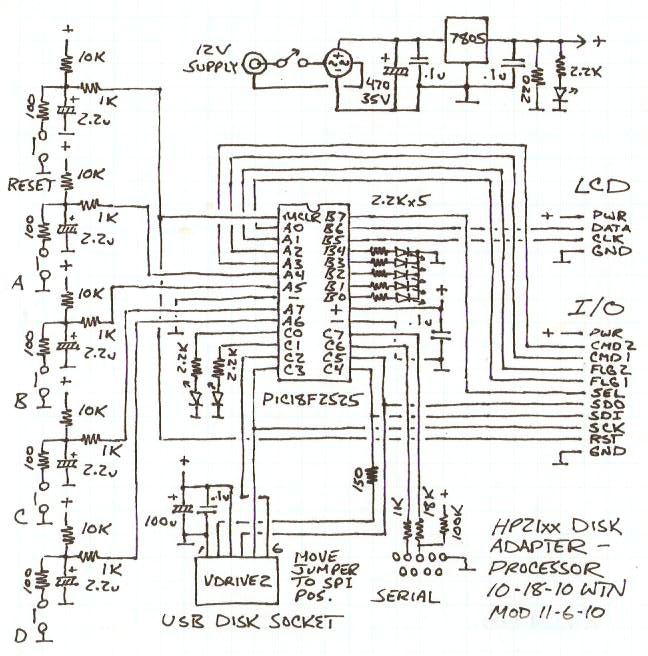 12V
SUPPLY
7805
+
470
35V
.1u
.1u
220
2.2K
+
10K
100
1K
2.2u
RESET
+
10K
100
1K
2.2u
A
+
10K
100
1K
2.2u
B
+
10K
100
1K
2.2u
C
+
10K
100
1K
2.2u
D
MCLR B7
A0 B6
A1 B5
A2 B4
A3 B3
A4 B2
A5 B1
– B0
A7 +
A6 –
C0 C7
C1 C6
C2 C5
C3 C4
PIC18F2525
2.2K x5
2.2K
2.2K
+
.1u
LCD
+ PWR
DATA
CLK
GND
I/O
+ PWR
CMD2
CMD1
FLG2
FLG1
SEL
SDO
SDI
SCK
RST
GND
150
1K
18K
100K
+
SERIAL
+
100u
.1u
1 6
VDRIVE2
MOVE
JUMPER
TO SPI
POS.
USB DISK SOCKET
HP21xx DISK
ADAPTER –
PROCESSOR
10-18-10 WTN
MOD 11-6-10